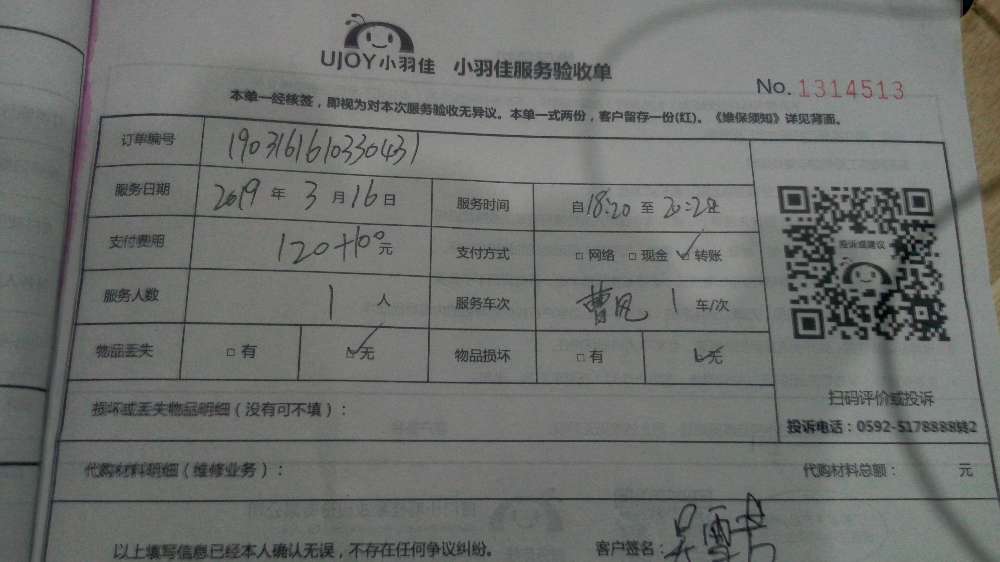 UJOY小羽佳 小羽佳服务验收单
No. 1314513
本单一经核签，即视为对本次服务验收无异议。本单一式两份，客户留存一份(红)。《维保须知》详见背面。
订单编号 1903161610330431
服务日期 2019 年 3 月 16 日 服务时间 自18:20 至 20:20
支付费用 120+100元 支付方式 □ 网络 □ 现金 ☑ 转账
投诉或建议
服务人数 1 人 服务车次 1 车/次
物品丢失 □ 有 ☑ 无 物品损坏 □ 有 ☑ 无
损坏或丢失物品明细（没有可不填）：
扫码评价或投诉
投诉电话：0592-5178888转2
代购材料明细（维修业务）： 代购材料总额： 元
以上填写信息已经本人确认无误，不存在任何争议纠纷。 客户签名：